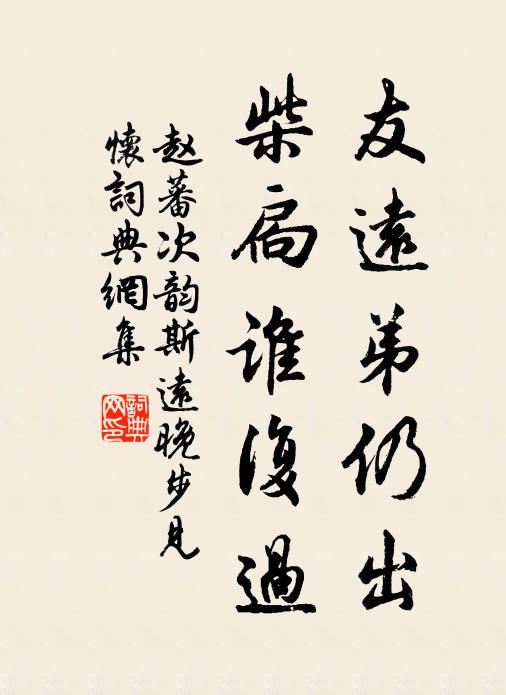 友遠弟仍出
柴扃誰復過
赵蕃次韵斯遠晚步見
懷詞典網集
詞典網印